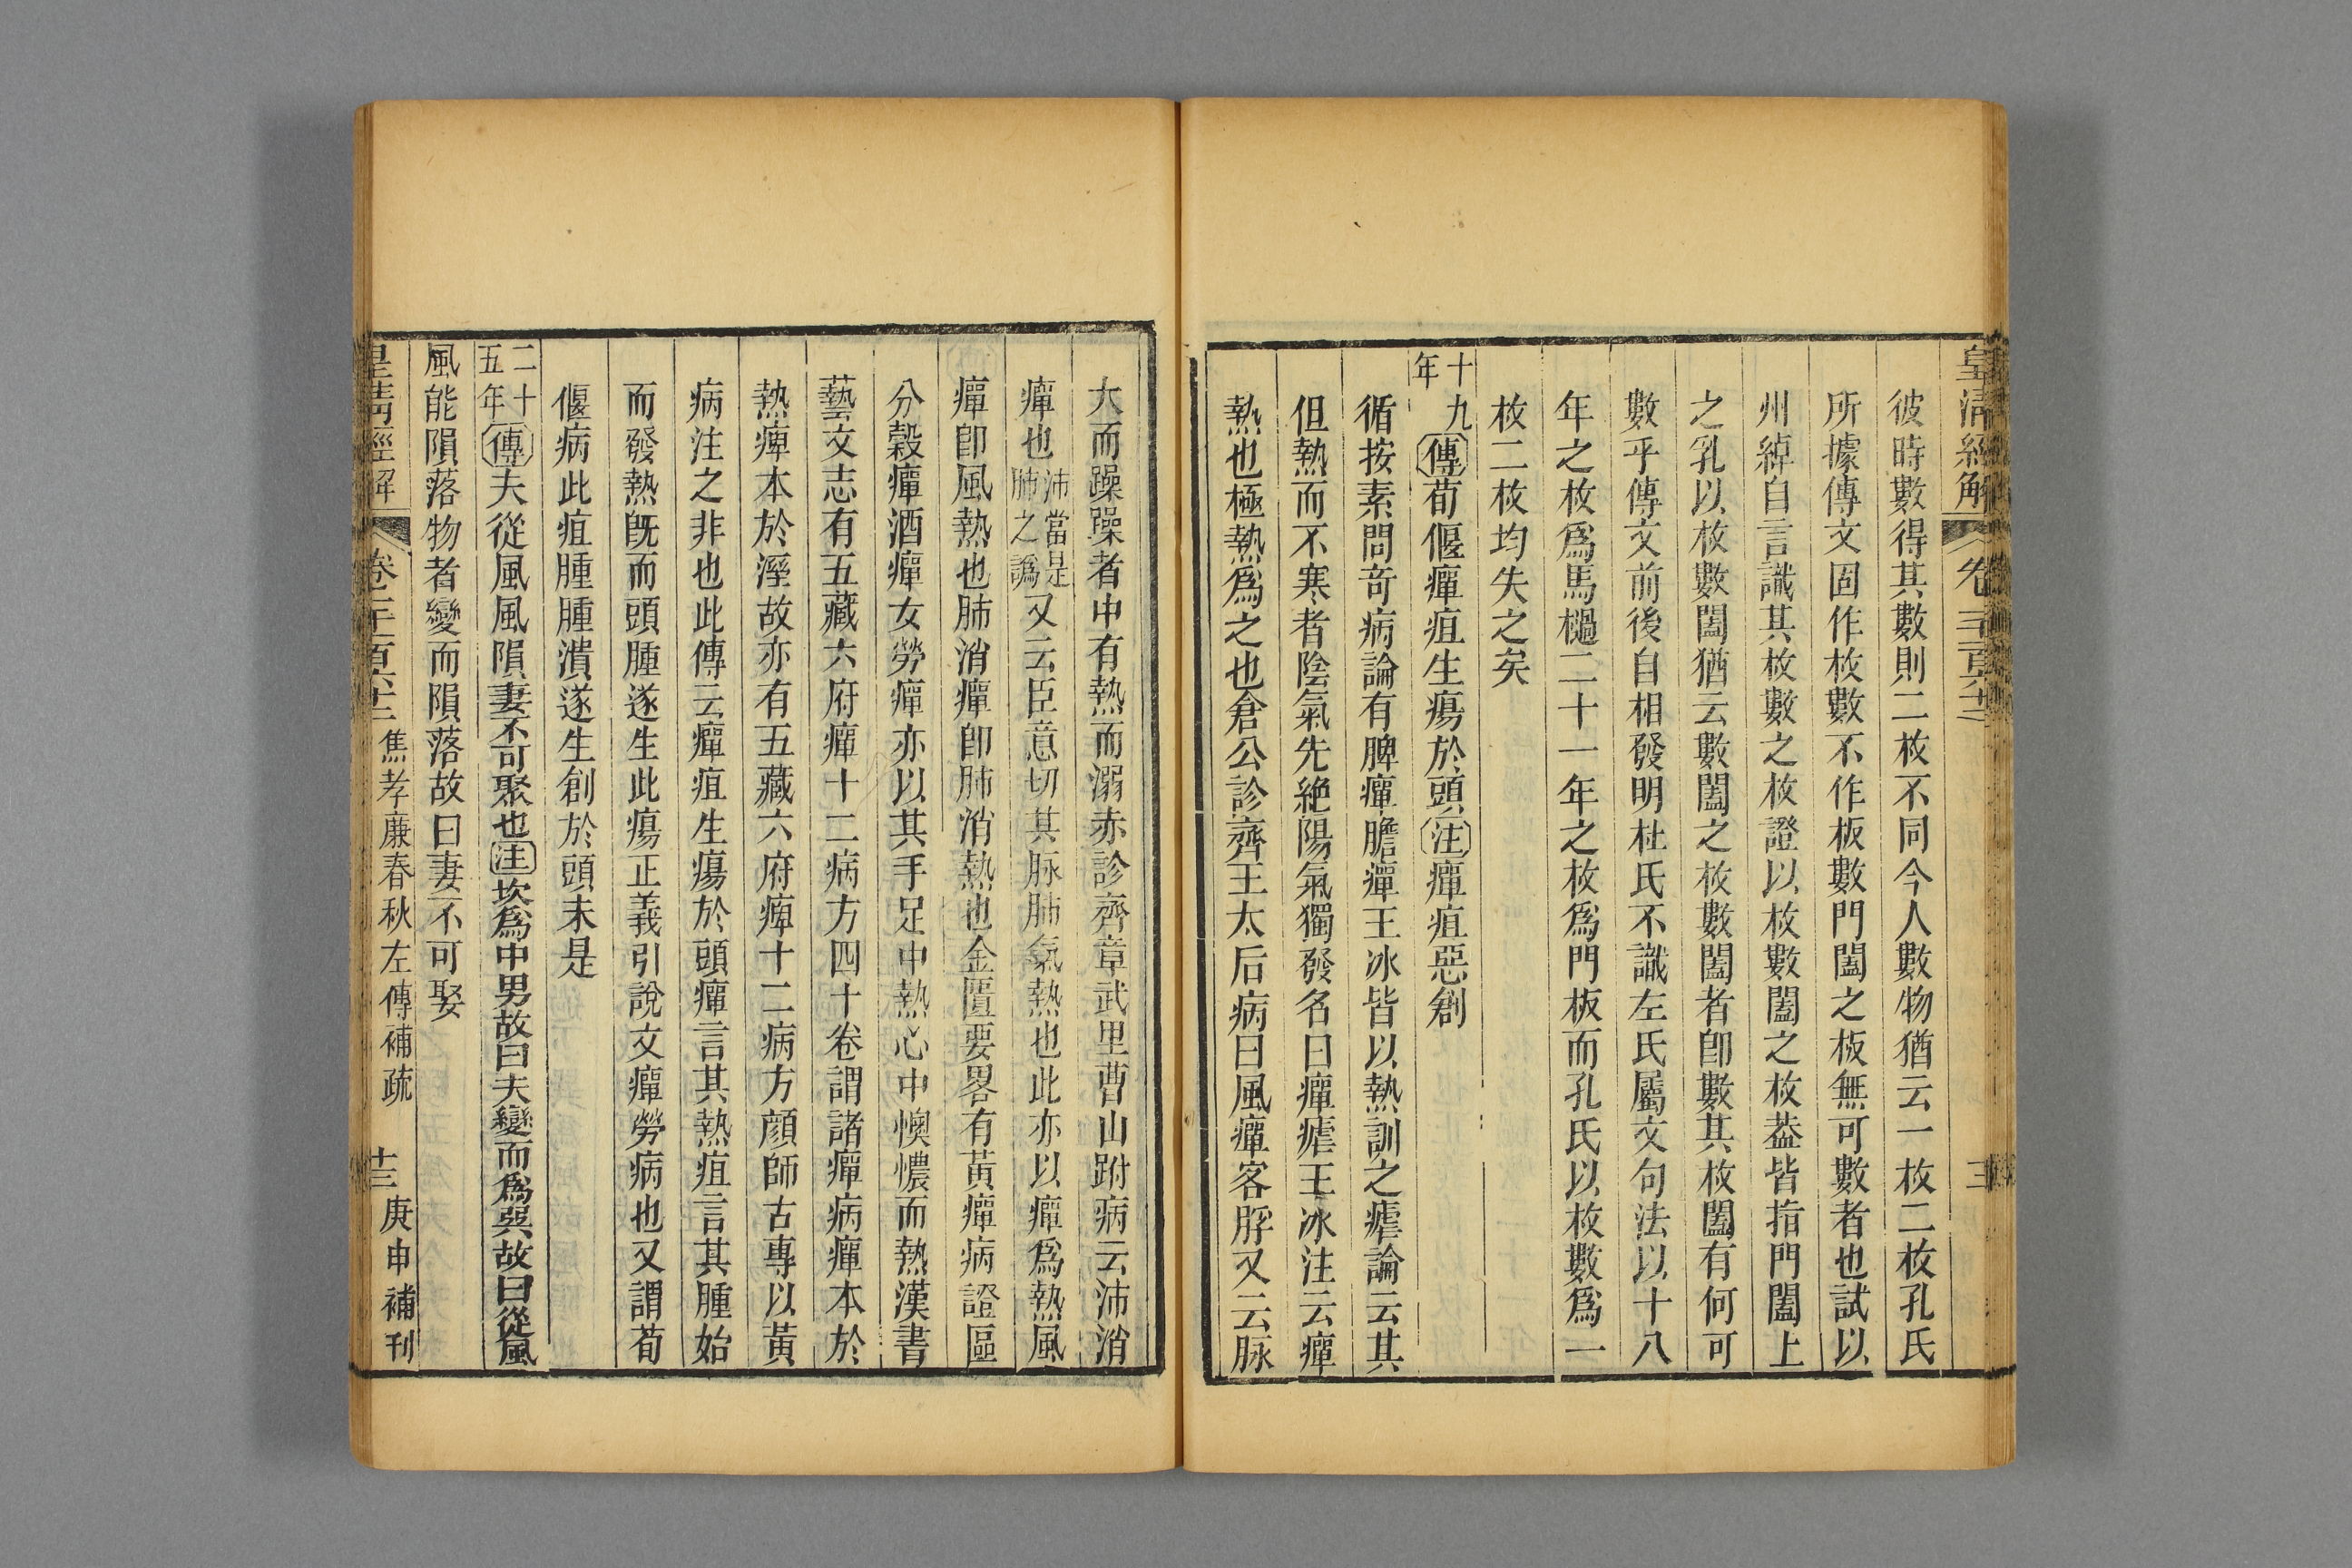 皇清經解
彼時數得其數則二枚不同今人數物猶云一枚二枚孔氏
所據傳文固作枚數不作板數門闔之板無可數者也試以
州綽自言識其枚數之枚證以枚數闔之枚葢皆指門闔上
之乳以枚數闔猶云數闔之枚數闔者卽數其枚闔有何可
數乎傳文前後自相發明杜氏不識左氏屬文句法以十八
年之枚爲馬檛二十一年之枚爲門板而孔氏以枚數爲一
枚二枚均失之矣
十九年傳荀偃癉疽生瘍於頭注癉疽惡創
循按素問奇病論有脾癉膽癉王冰皆以熱訓之瘧論云其
但熱而不寒者陰氣先絶陽氣獨發名曰癉瘧王冰注云癉
熱也極熱爲之也倉公診齊王太后病曰風癉客脬又云脉
大而躁躁者中有熱而溺赤診齊章武里曹山跗病云沛消
癉也沛當是肺之譌又云臣意切其脉肺氣熱也此亦以癉爲熱風
癉卽風熱也肺消癉卽肺消熱也金匱要畧有黃癉病證區
分穀癉酒癉女勞癉亦以其手足中熱心中懊憹而熱漢書
藝文志有五藏六府癉十二病方四十卷謂諸癉病癉本於
熱痺本於溼故亦有五藏六府痺十二病方顔師古專以黃
病注之非也此傳云癉疽生瘍於頭癉言其熱疽言其腫始
而發熱旣而頭腫遂生此瘍正義引說文癉勞病也又謂荀
偃病此疽腫腫潰遂生創於頭未是
二十五年傳夫從風風隕妻不可聚也注坎爲中男故曰夫變而爲巽故曰從風
風能隕落物者變而隕落故曰妻不可娶
皇清經解 卷 焦孝廉春秋左傳補疏 十三 庚申補刊